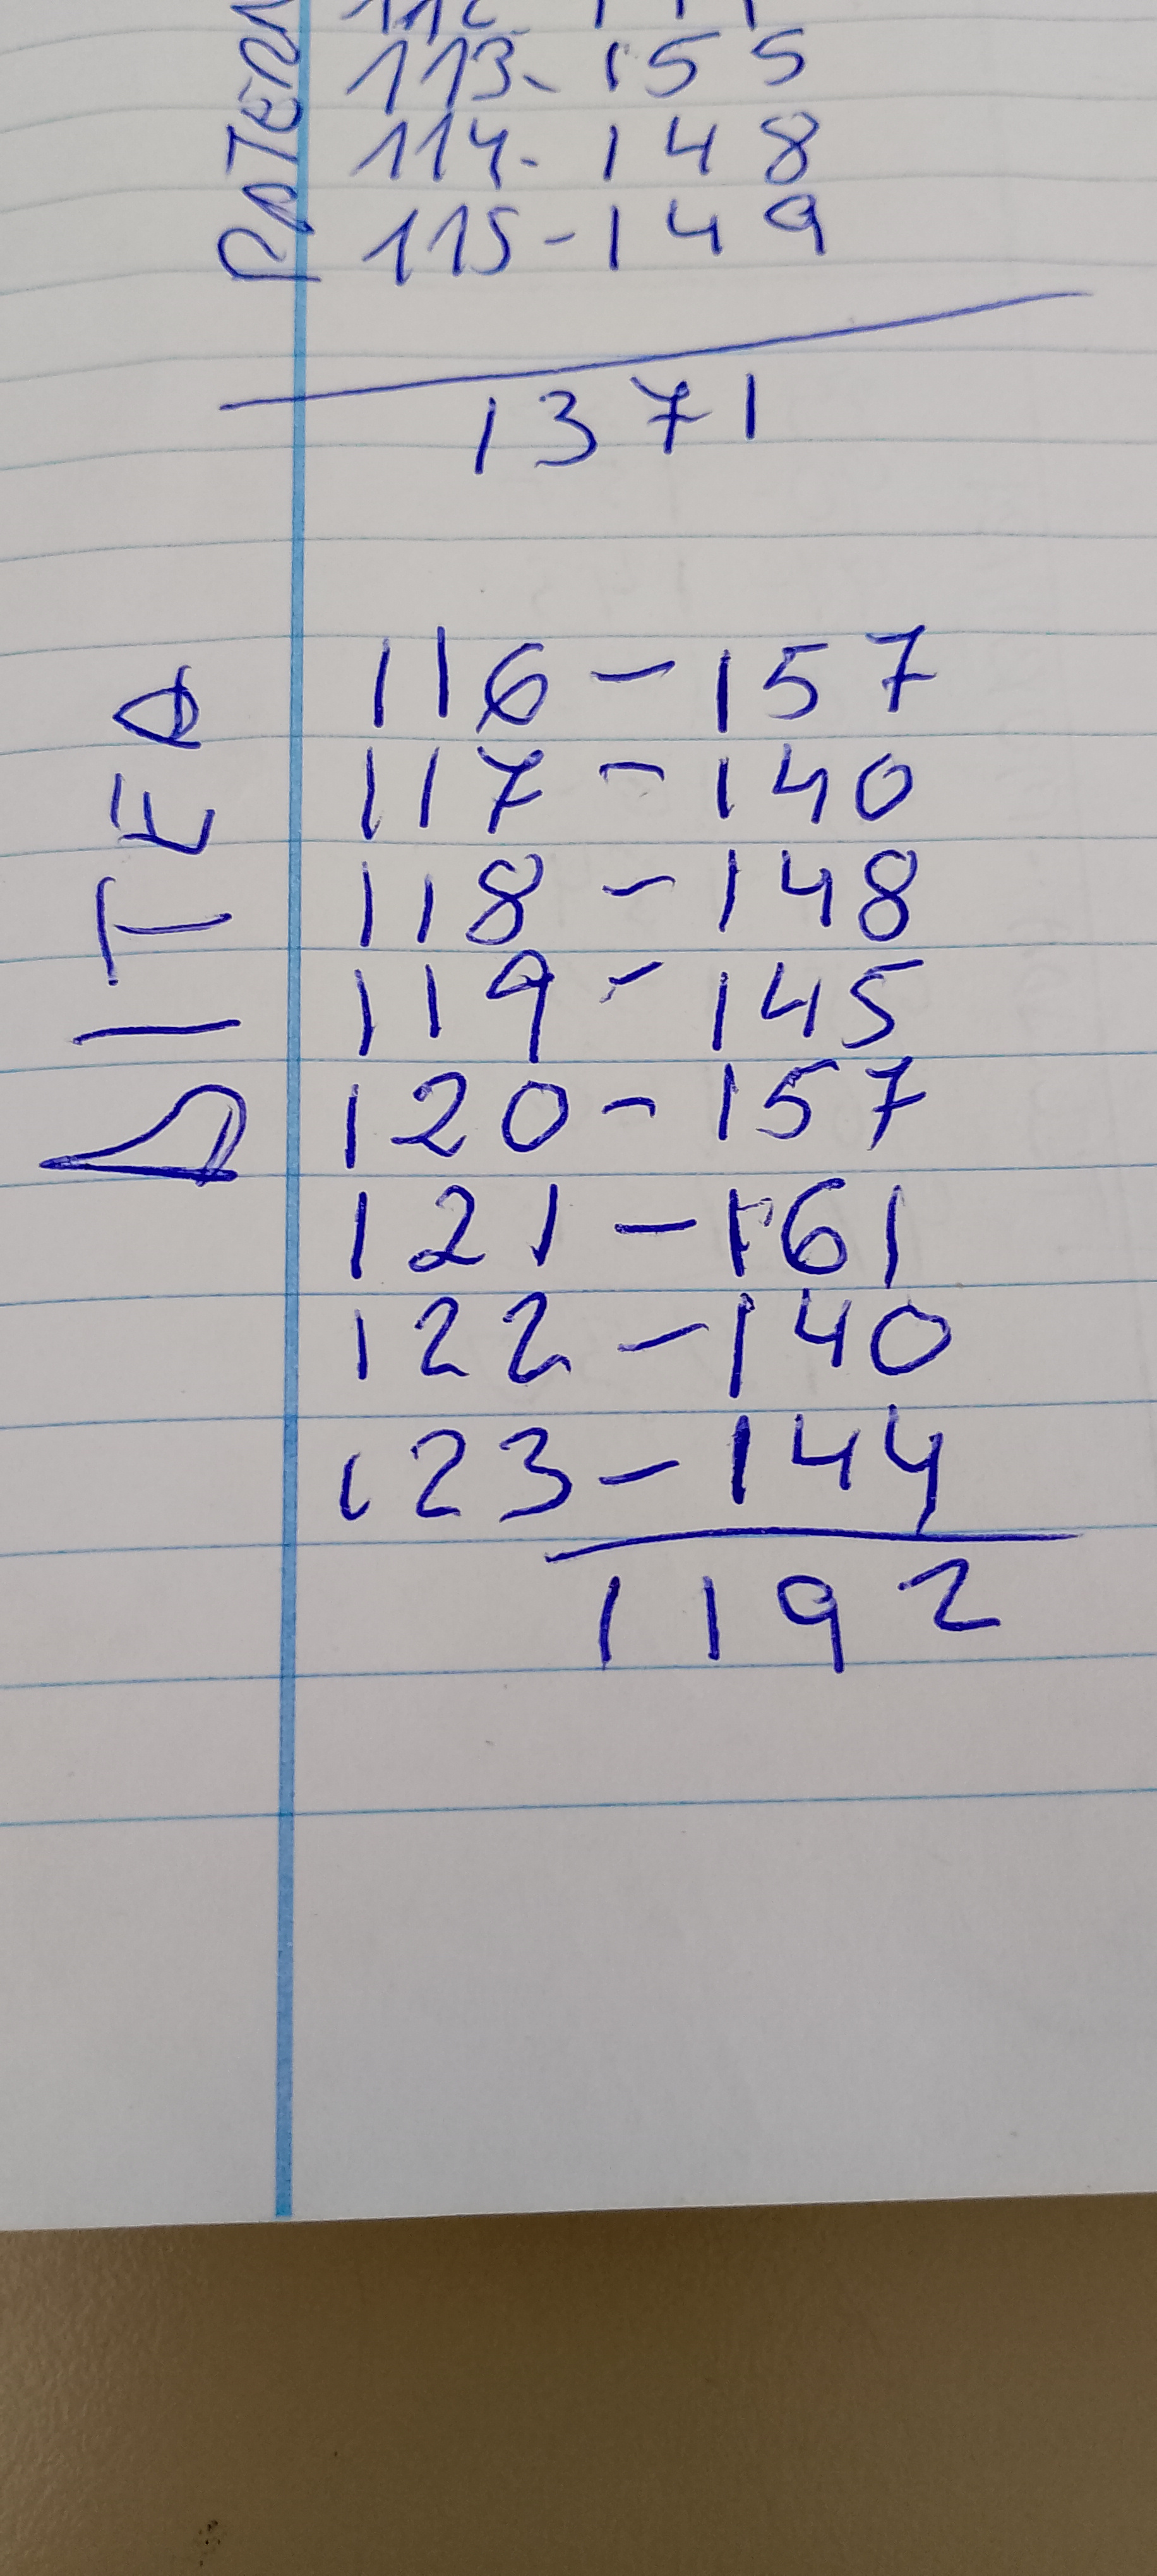 113-155
114-148
115-149
1371
116-157
117-140
118-148
119-145
120-157
121-161
122-140
123-144
1192